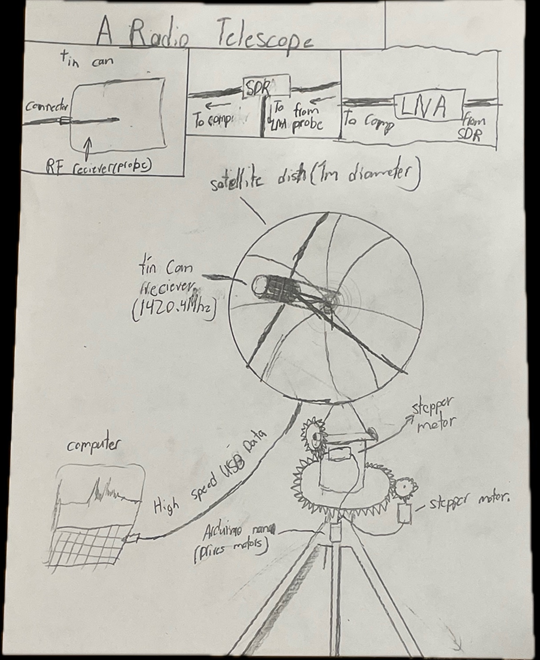 A Radio Telescope
tin can
connector
RF reciever(probe)
SDR
To comp
To
LNA
from
probe
LNA
To comp
from
SDR
satellite dish (1m diameter)
tin can
reciever
(1420.4Mhz)
stepper
motor
computer
High speed USB Data
stepper motor.
Arduino nano
(Drives motors)